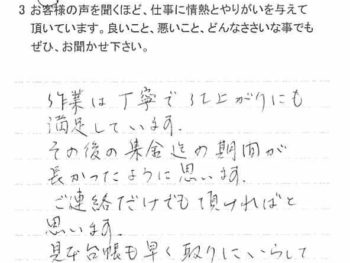 3 お客様の声を聞くほど、仕事に情熱とやりがいを与えて
頂いています。良いこと、悪いこと、どんなささいな事でも
ぜひ、お聞かせ下さい。
作業は丁寧で仕上がりにも
満足しています.
その後の集金迄の期間が
長かったように思います.
ご連絡だけでも頂ければと
思います.
見本台帳も早く取りにいらして